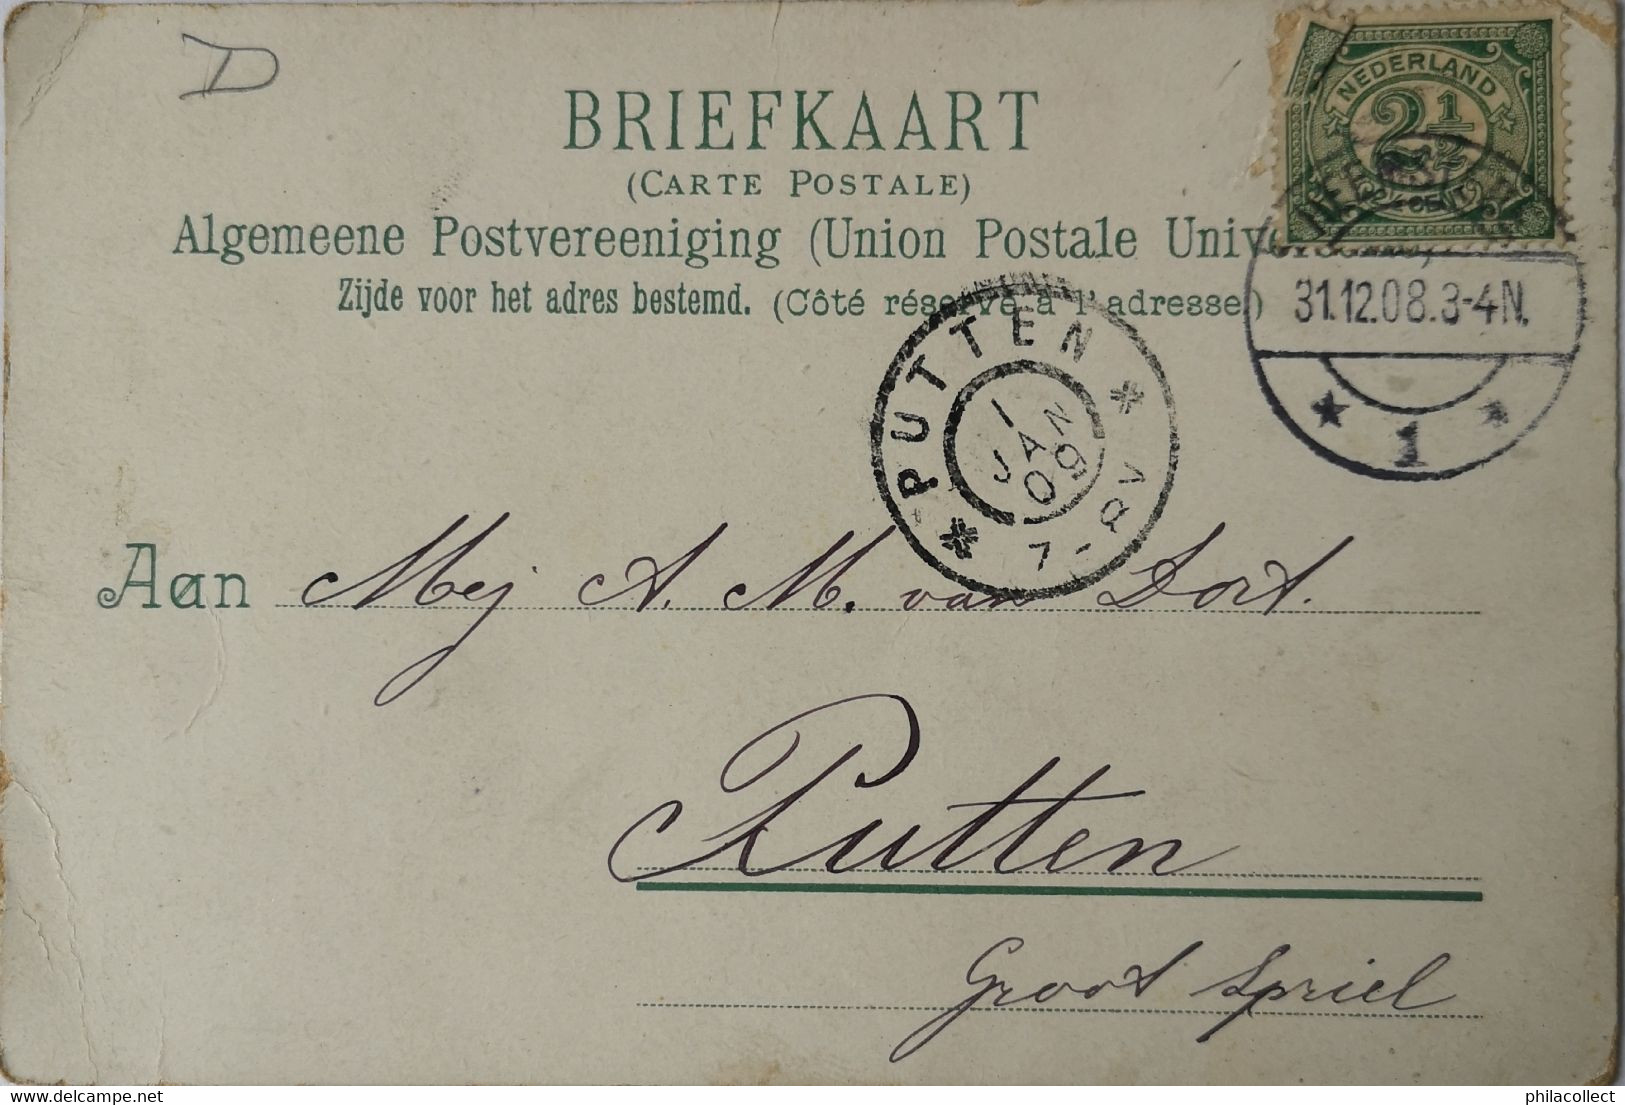 D
NEDERLAND
2 1/2
2½ CENT 2½
BRIEFKAART
(CARTE POSTALE)
Algemeene Postvereeniging (Union Postale
Zijde voor het adres bestemd. (Côté réservé à l'adresse.)
31.12.08.3-4N.
1
PUTTEN
1
JAN
09
7-8V
Aan Mej A. M. van Dort.
Putten
Groot Spriel
philacollect